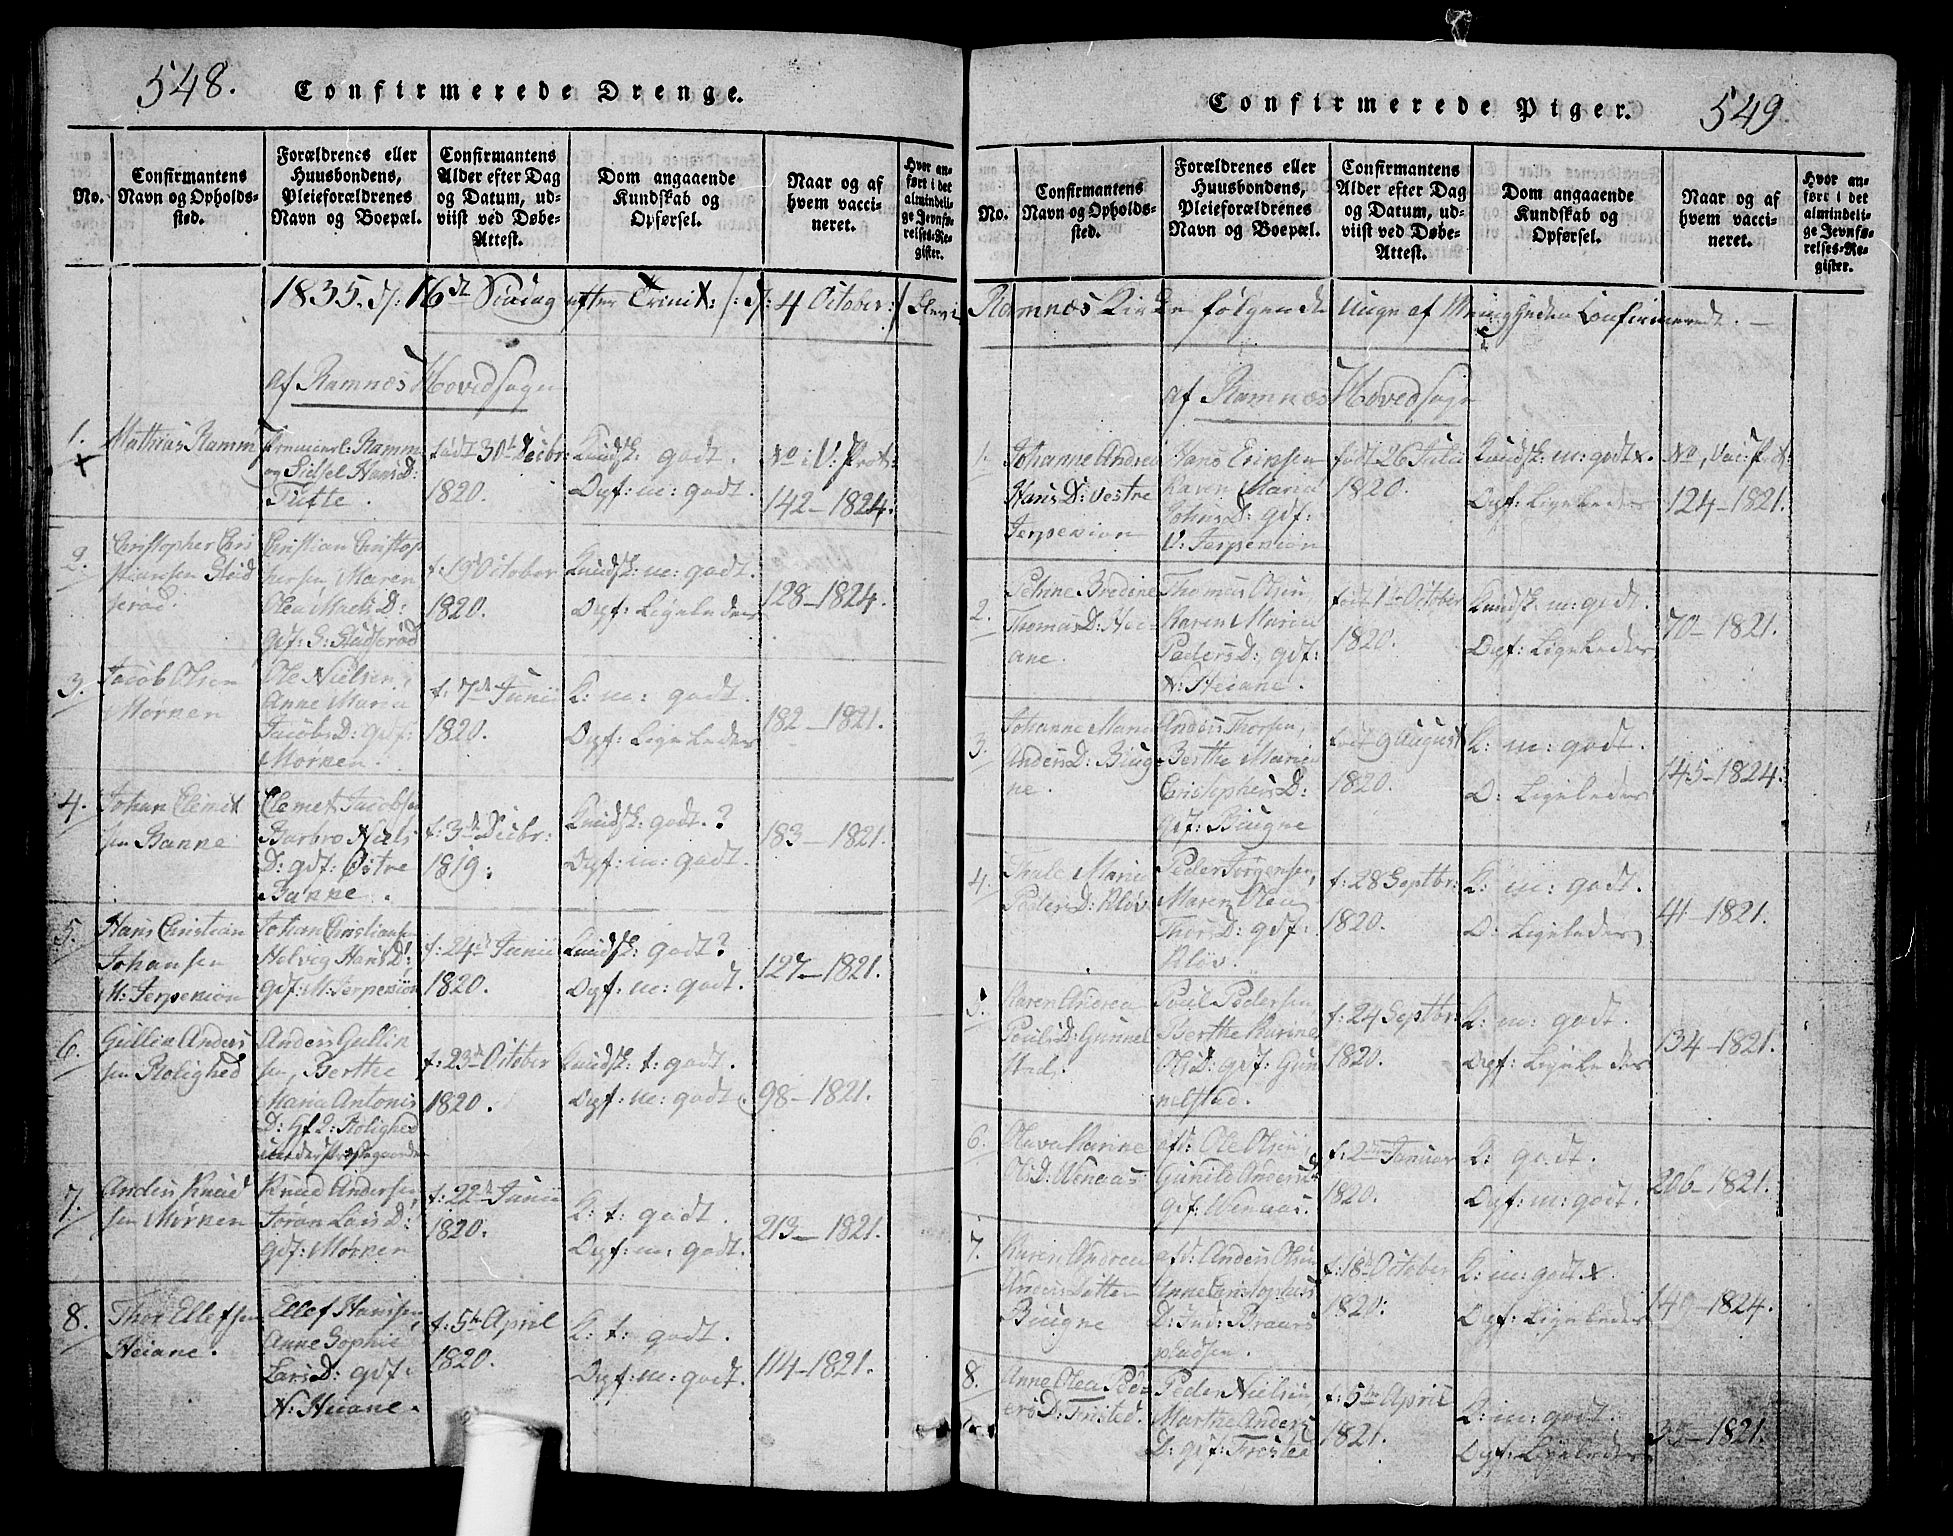 548.
Confirmerede Drenge.
No.
Confirmantens
Navn og Opholds-
sted.
Forældrenes eller
Huusbondens,
Pleieforældrenes
Navn og Boepæl.
Confirmantens
Alder efter Dag
og Datum, ud-
viist ved Døbe-
Attest.
Dom angaaende
Kundskab og
Opførsel.
Naar og af
hvem vacci-
neret.
Hvor an-
ført i det
almindeli-
ge Jevnfø-
relses-Re-
gister.
1835. d: 16de Søndag efter Trinit: /: d: 4 October :/
af Ramnæs Hovedsogn
1.
Mathias Ramm
Premierl: Ramm
og Sidsel Hans D:
Tufte.
født 30te Decbr:
1820.
Kundsk: godt.
Opf: m: godt.
No i V: Prot:
142-1824.
2.
Christopher Chri
stiansen Stid
serød.
Christian Christop
hersen, Maren
Olea Mads D:
gdf: S: Stidserød
f: 19de October
1820.
Kundsk: m: godt.
Opf: Ligeledes
128-1824.
3.
Jacob Olsen
Mørken
Ole Nielsen,
Anne Maria
Jacobs D: gdf:
Mørken.
f: 7de Junii
1820.
K: m: godt.
Opf: Ligeledes
182-1821.
4.
Johan Clemet
sen Banne
Clemet Jacobsen
Barbro Niels
D: gdf: Østre
Banne.
f: 3de Decbr:
1819.
Kundsk: godt?
Opf: m: godt.
183-1821.
5.
Hans Christian
Johansen
M: Jerpeniøn
Johan Christiansen
Helvig Hans D:
gdf: M: Jerpeniøn
f: 24de Junii
1820.
Kundsk: godt?
Opf: m: godt.
127-1821.
6.
Gullik Anders
sen Rolighed
Anders Gullik
sen, Berthe
Maria Antonis
D: Hf I: Rolighed
under Præstegaarden
f: 23de October
1820.
Kundsk: t: godt.
Opf: m: godt.
98-1821.
7.
Anders Knud
sen Mørken
Knud Andersen,
Jøran Lars D:
gdf: Mørken
f: 22de Junii
1820.
K: t: godt.
Opf: m: godt.
213-1821.
8.
Thor Ellefsen
Heiane.
Ellef Hansen,
Anne Sophie
Lars D: gdf:
N: Heiane.
f: 5te April
1820.
K: t: godt.
Opf: m: godt.
114-1821.
549.
Confirmerede Piger.
No.
Confirmantens
Navn og Opholds-
sted.
Forældrenes eller
Huusbondens,
Pleieforældrenes
Navn og Boepæl.
Confirmantens
Alder efter Dag
og Datum, ud-
viist ved Døbe-
Attest.
Dom angaaende
Kundskab og
Opførsel.
Naar og af
hvem vacci-
neret.
Hvor an-
ført i det
almindeli-
ge Jevnfø-
relses-Re-
gister.
Ramnæs Kirke følgende Unge af Menigheden Confirmerede.
af Ramnæs Hovedsogn
1.
Johanne Andrea
Hans D: Vestre
Jerpeniøn
Hans Eriksen
Karen Maria
Johns D: gdf:
V: Jerpeniøn
født 26 Julii
1820.
Kundsk: m: godt.
Opf: Ligeledes
No, Vac: Prot:
124-1821.
2.
Petrine Bredine
Thomas D: Hei-
ane.
Thomas Olsen,
Karen Maria
Peders D: gdf:
N: Heiane.
født 1te October
1820.
Kundsk: m: godt.
Opf: Ligeledes
70-1821.
3.
Johanne Maria
Anders D: Biug
ne.
Anders Thorsen,
Berthe Maria
Christophers D:
gdf: Biugne
født 9 August
1820.
K: m: godt.
O: Ligeledes
145-1824.
4.
Thale Maria
Peders D: Kløv
Peder Jørgensen,
Maren Olea
Thors D: gdf:
Kløv.
f: 28 Septbr:
1820.
K: m: godt.
O: Ligeledes
41-1821.
5.
Karen Andrea
Pouls D: Gunnel
sted.
Poul Pedersen
Berthe Karine
Ols D: gdf: Gun
nelsted.
f: 24 Septbr:
1820.
K: m: godt.
Opf: Ligeledes
134-1821.
6.
Olava Karine
Ols D: Wenaas
afd: Ole Olsen,
Gunild Anders D
gdf: Wenaas.
f: 2den Januar
1820.
K: godt.
Opf: m: godt.
206-1821.
7.
Karen Andrea
Anders Datter
Biugne
afd: Anders Olsen
Anne Christophers
D: Ind: Braars
pladsen.
f: 18de October
1820.
K: m: godt.
Opf: Ligeledes
140-1824.
8.
Anne Olea Ped-
ers D: Frøsted.
Peder Nielsen,
Marthe Anders
D: gdf: Frøsted
f: 5te April
1821.
K: m: godt.
Opf: Ligeledes
35-1821.